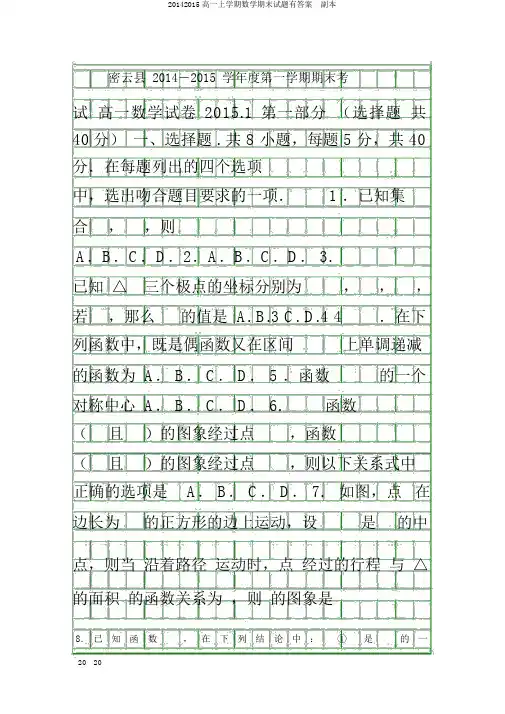 20142015高一上学期数学期末试题有答案 副本
密云县 2014－2015 学年度第一学期期末考
试 高一数学试卷 2015.1 第一部分 （选择题 共
40 分） 一、选择题 . 共 8 小题，每题 5 分，共 40
分．在每题列出的四个选项
中，选出吻合题目要求的一项． 1 ．已知集
合 ， ，则
A．B．C．D．2．A．B．C．D． 3.
已知 △ 三个极点的坐标分别为 ， ， ，
若 ，那么 的值是 A.B.3 C.D.4 4 ．在下
列函数中，既是偶函数又在区间 上单调递减
的函数为 A． B． C． D． 5 ．函数 的一个
对称中心 A． B． C． D． 6. 函数
（ 且 ）的图象经过点 ，函数
（ 且 ）的图象经过点 ，则以下关系式中
正确的选项是 A． B． C．D． 7． 如图，点 在
边长为 的正方形的边上运动，设 是 的中
点，则当 沿着路径 运动时，点 经过的行程 与 △
的面积 的函数关系为 ，则 的图象是
8. 已知函数 ，在下列结论中： ① 是 的一
20 20